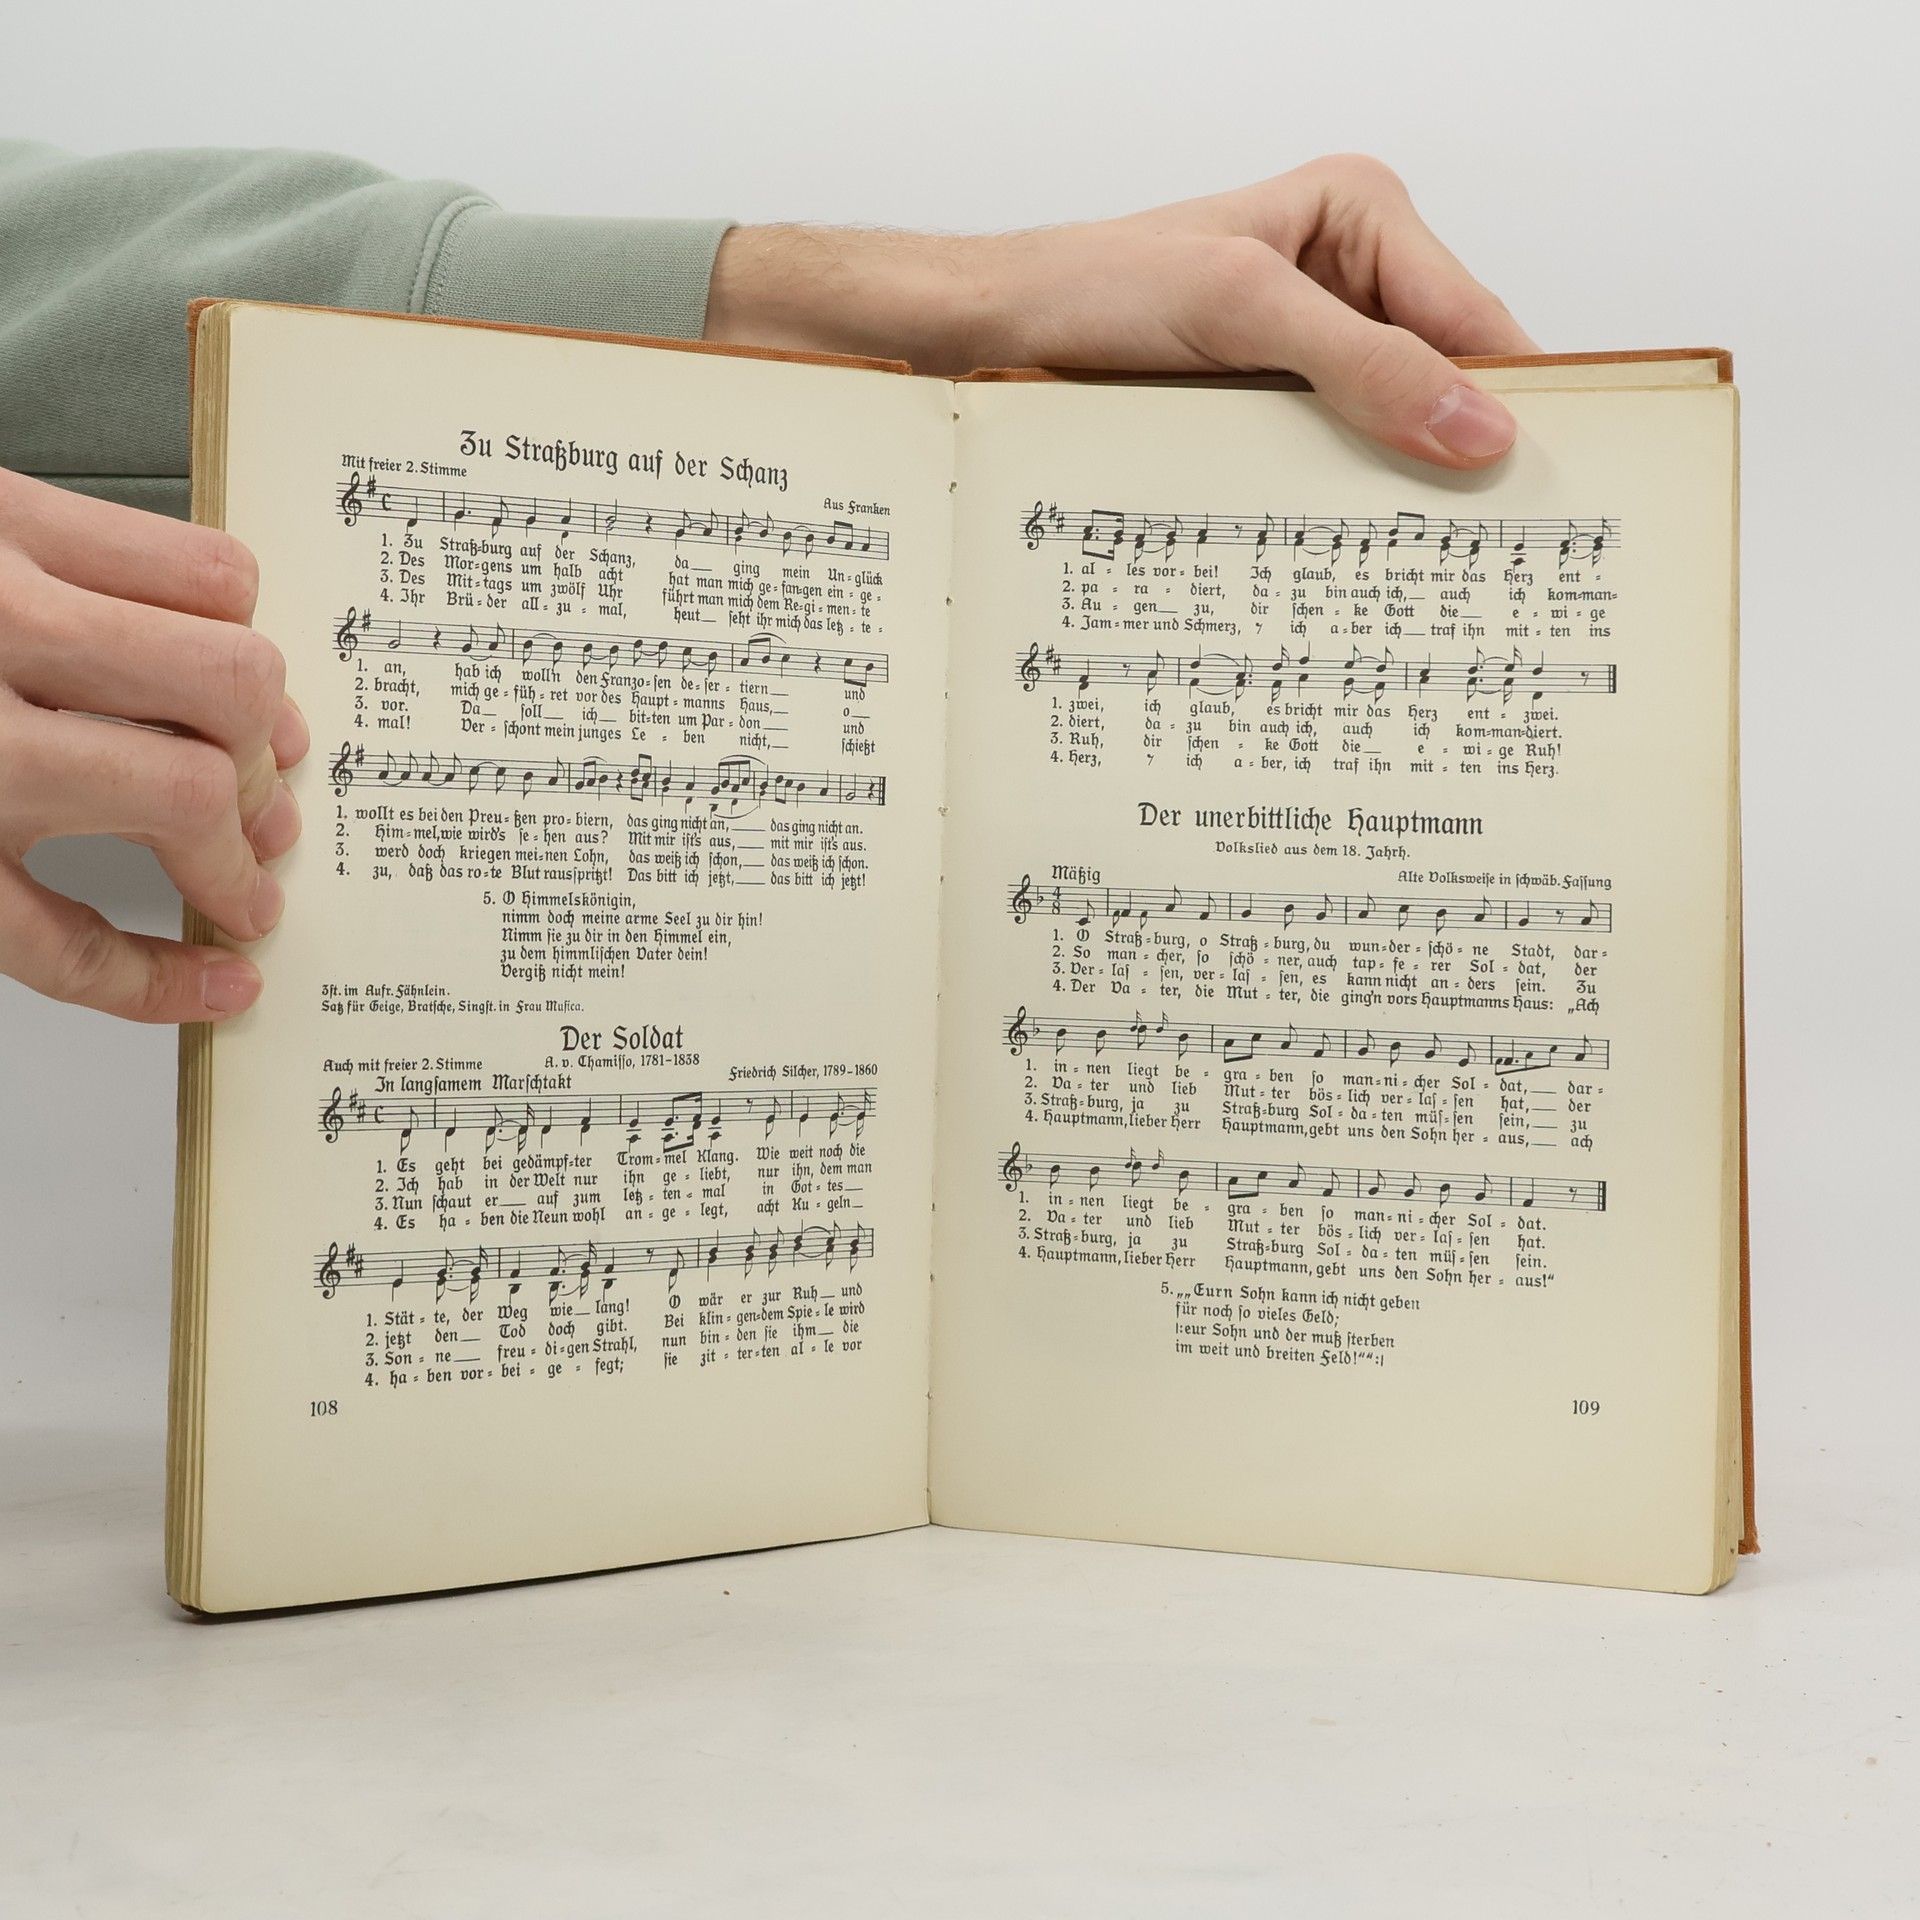 Zu Straßburg auf der Schanz
Mit freier 2. Stimme
Aus Franken
1. Zu Straß=burg auf der Schanz, da__ ging mein Un=glück
2. Des Mor=gens um halb acht hat man mich ge=fan=gen ein=ge=
3. Des Mit=tags um zwölf Uhr führt man mich dem Re=gi=men=te
4. Ihr Brü=der all=zu=mal, heut__ seht ihr mich das letz=te=
1. an, hab ich woll'n den Franzo=sen de=ser=tiern__ und
2. bracht, mich ge=füh=ret vor des Haupt=manns Haus,__
3. vor. Da__ soll__ ich__ bit=ten um Par=don__ o__
4. mal! Ver=schont mein junges Le=ben nicht,__ und schießt
1. wollt es bei den Preu=ßen pro=biern, das ging nicht an,__ das ging nicht an.
2. Him=mel, wie wird's je=hen aus? Mit mir ist's aus,__ mit mir ist's aus.
3. werd doch kriegen mei=nen Lohn, das weiß ich schon,__ das weiß ich schon.
4. zu, daß das ro=te Blut rausspritzt! Das bitt ich jetzt,__ das bitt ich jetzt!
5. O Himmelskönigin,
nimm doch meine arme Seel zu dir hin!
Nimm sie zu dir in den Himmel ein,
zu dem himmlischen Vater dein!
Vergiß nicht mein!
Zst. im Aufr. Fähnlein.
Satz für Geige, Bratsche, Singst. in Frau Musica.
Der Soldat
Auch mit freier 2. Stimme
A. v. Chamisso, 1781–1838
Friedrich Silcher, 1789–1860
In langsamem Marschtakt
1. Es geht bei gedämpf=ter Trom=mel Klang. Wie weit noch die
2. Ich hab in der Welt nur ihn ge=liebt, nur ihn, dem man
3. Nun schaut er__ auf zum letz=ten=mal in Got=tes__
4. Es ha=ben die Neun wohl an=ge=legt, acht Ku=geln__
1. Stät=te, der Weg wie__ lang! O wär er zur Ruh__ und
2. jetzt den__ Tod doch gibt. Bei klin=gen=dem Spie=le wird
3. Son=ne__ freu=di=gen Strahl, nun bin=den sie ihm__ die
4. ha=ben vor=bei=ge=fegt; sie zit=ter=ten al=le vor
108
1. al=les vor=bei! Ich glaub, es bricht mir das Herz ent=
2. pa=ra=diert, da=zu bin auch ich,__ auch ich kom=man=
3. Au=gen__ zu, dir schen=ke Gott die__ e=wi=ge
4. Jam=mer und Schmerz, ich a=ber ich__ traf ihn mit=ten ins
1. zwei, ich glaub, es bricht mir das Herz ent=zwei.
2. diert, da=zu bin auch ich, auch ich kom=man=diert.
3. Ruh, dir schen=ke Gott die__ e=wi=ge Ruh!
4. Herz, ich a=ber, ich traf ihn mit=ten ins Herz.
Der unerbittliche Hauptmann
Volkslied aus dem 18. Jahrh.
Mäßig
Alte Volksweise in schwäb. Fassung
1. O Straß=burg, o Straß=burg, du wun=der=schö=ne Stadt, dar=
2. So man=cher, so schö=ner, auch tap=fe=rer Sol=dat, der
3. Ver=las=sen, ver=las=sen, es kann nicht an=ders sein. Zu
4. Der Va=ter, die Mut=ter, die ging'n vors Hauptmanns Haus: „Ach
1. in=nen liegt be=gra=ben so man=ni=cher Sol=dat,__ dar=
2. Va=ter und lieb Mut=ter bös=lich ver=las=sen hat,__ der
3. Straß=burg, ja zu Straß=burg Sol=da=ten müs=sen sein,__ zu
4. Hauptmann, lieber Herr Hauptmann, gebt uns den Sohn her=aus,__ ach
1. in=nen liegt be=gra=ben so man=ni=cher Sol=dat.
2. Va=ter und lieb Mut=ter bös=lich ver=las=sen hat.
3. Straß=burg, ja zu Straß=burg Sol=da=ten müs=sen sein.
4. Hauptmann, lieber Herr Hauptmann, gebt uns den Sohn her=aus!“
5. „„Eurn Sohn kann ich nicht geben
für noch so vieles Geld;
|:eur Sohn und der muß sterben
im weit und breiten Feld!““:|
109